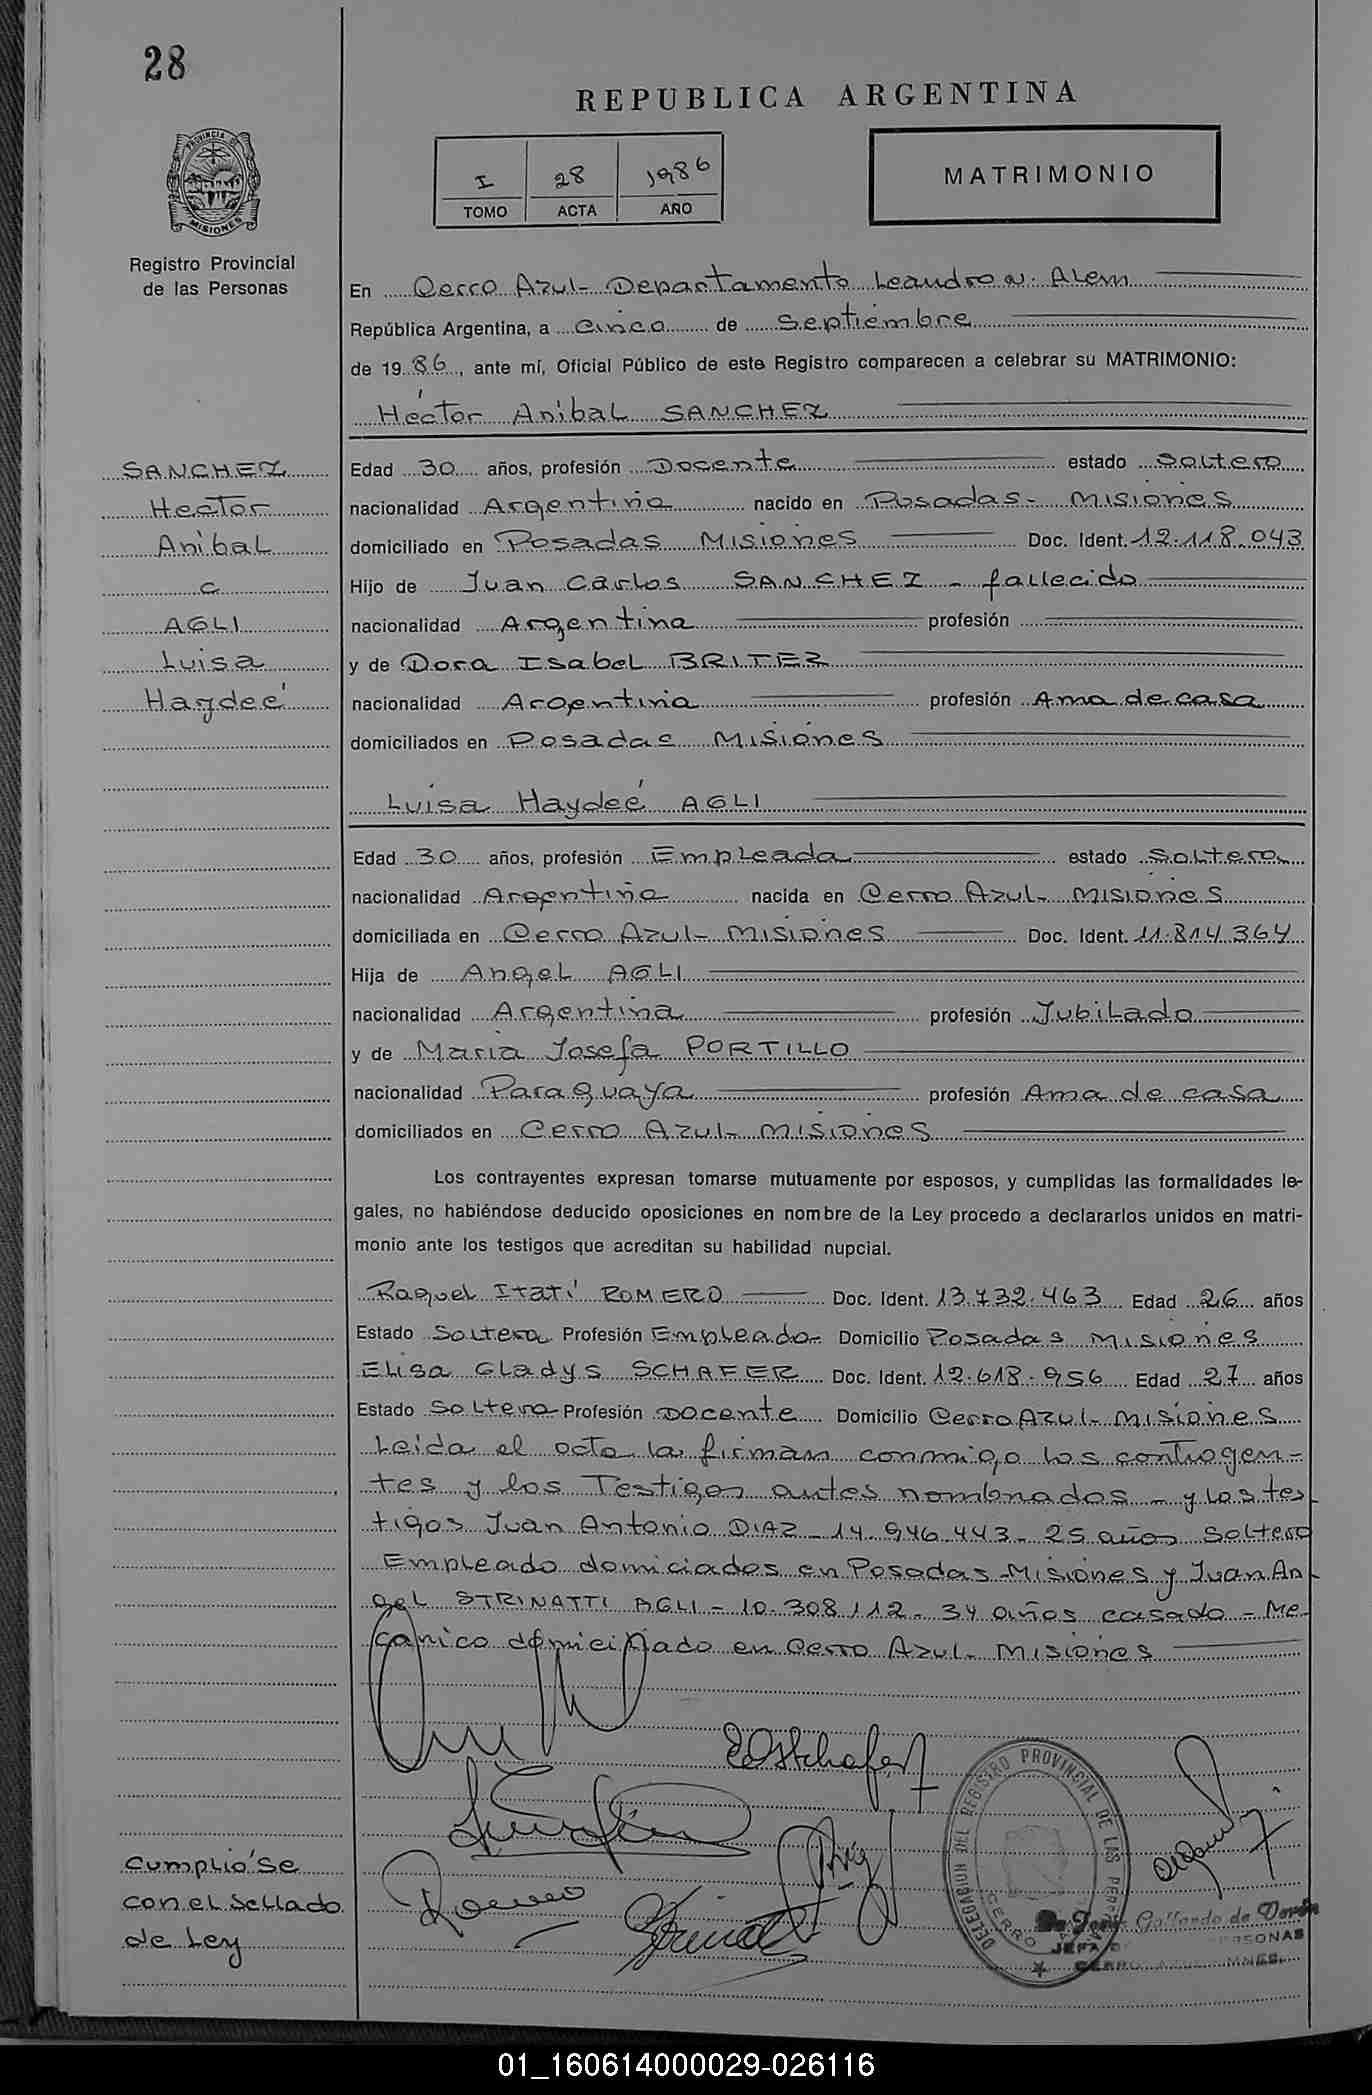 28
REPUBLICA ARGENTINA
PROVINCIA DE MISIONES
I 28 1986
TOMO ACTA AÑO
MATRIMONIO
Registro Provincial
de las Personas
En Cerro Azul- Departamento Leandro N. Alem
República Argentina, a cinco de Septiembre
de 1986, ante mí, Oficial Público de este Registro comparecen a celebrar su MATRIMONIO:
Héctor Anibal SANCHEZ
SANCHEZ
Hector
Anibal
c
AGLI
Luisa
Haydeé
Edad 30 años, profesión Docente estado Soltero
nacionalidad Argentina nacido en Posadas- Misiones
domiciliado en Posadas Misiones Doc. Ident. 12.118.043
Hijo de Juan Carlos SANCHEZ - fallecido
nacionalidad Argentina profesión
y de Dora Isabel BRITEZ
nacionalidad Argentina profesión Ama de casa
domiciliados en Posadas Misiones
Luisa Haydeé AGLI
Edad 30 años, profesión Empleada estado Soltera
nacionalidad Argentina nacida en Cerro Azul- Misiones
domiciliada en Cerro Azul- Misiones Doc. Ident. 11.814.364
Hija de Angel AGLI
nacionalidad Argentina profesión Jubilado
y de Maria Josefa PORTILLO
nacionalidad Paraguaya profesión Ama de casa
domiciliados en Cerro Azul- Misiones
Los contrayentes expresan tomarse mutuamente por esposos, y cumplidas las formalidades le-
gales, no habiéndose deducido oposiciones en nombre de la Ley procedo a declararlos unidos en matri-
monio ante los testigos que acreditan su habilidad nupcial.
Raquel Itatí ROMERO Doc. Ident. 13.732.463 Edad 26 años
Estado Soltera Profesión Empleada- Domicilio Posadas Misiones
Elisa Gladys SCHAFER Doc. Ident. 12.618.956 Edad 27 años
Estado Soltera Profesión Docente Domicilio Cerro Azul- Misiones
Leida el acta la firman conmigo los contrayen-
tes y los Testigos antes nombrados - y los tes-
tigos Juan Antonio DIAZ - 14.946.443- 25 años Soltero
Empleado domiciados en Posadas-Misiones y Juan An-
gel STRINATTI AGLI - 10.308.112- 34 años casado - Me-
canico domiciliado en Cerro Azul- Misiones
Cumplió'se
con el Sellado
de Ley
Romero
DELEGACION DEL REGISTRO PROVINCIAL DE LAS PERSONAS
CERRO
Gallardo de Verón
JEFA DE PERSONAS
CERRO AZUL MNES.
01_160614000029-026116